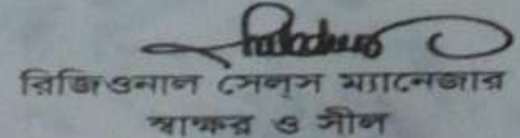 রিজিওনাল সেলস ম্যানেজার
স্বাক্ষর ও সীল